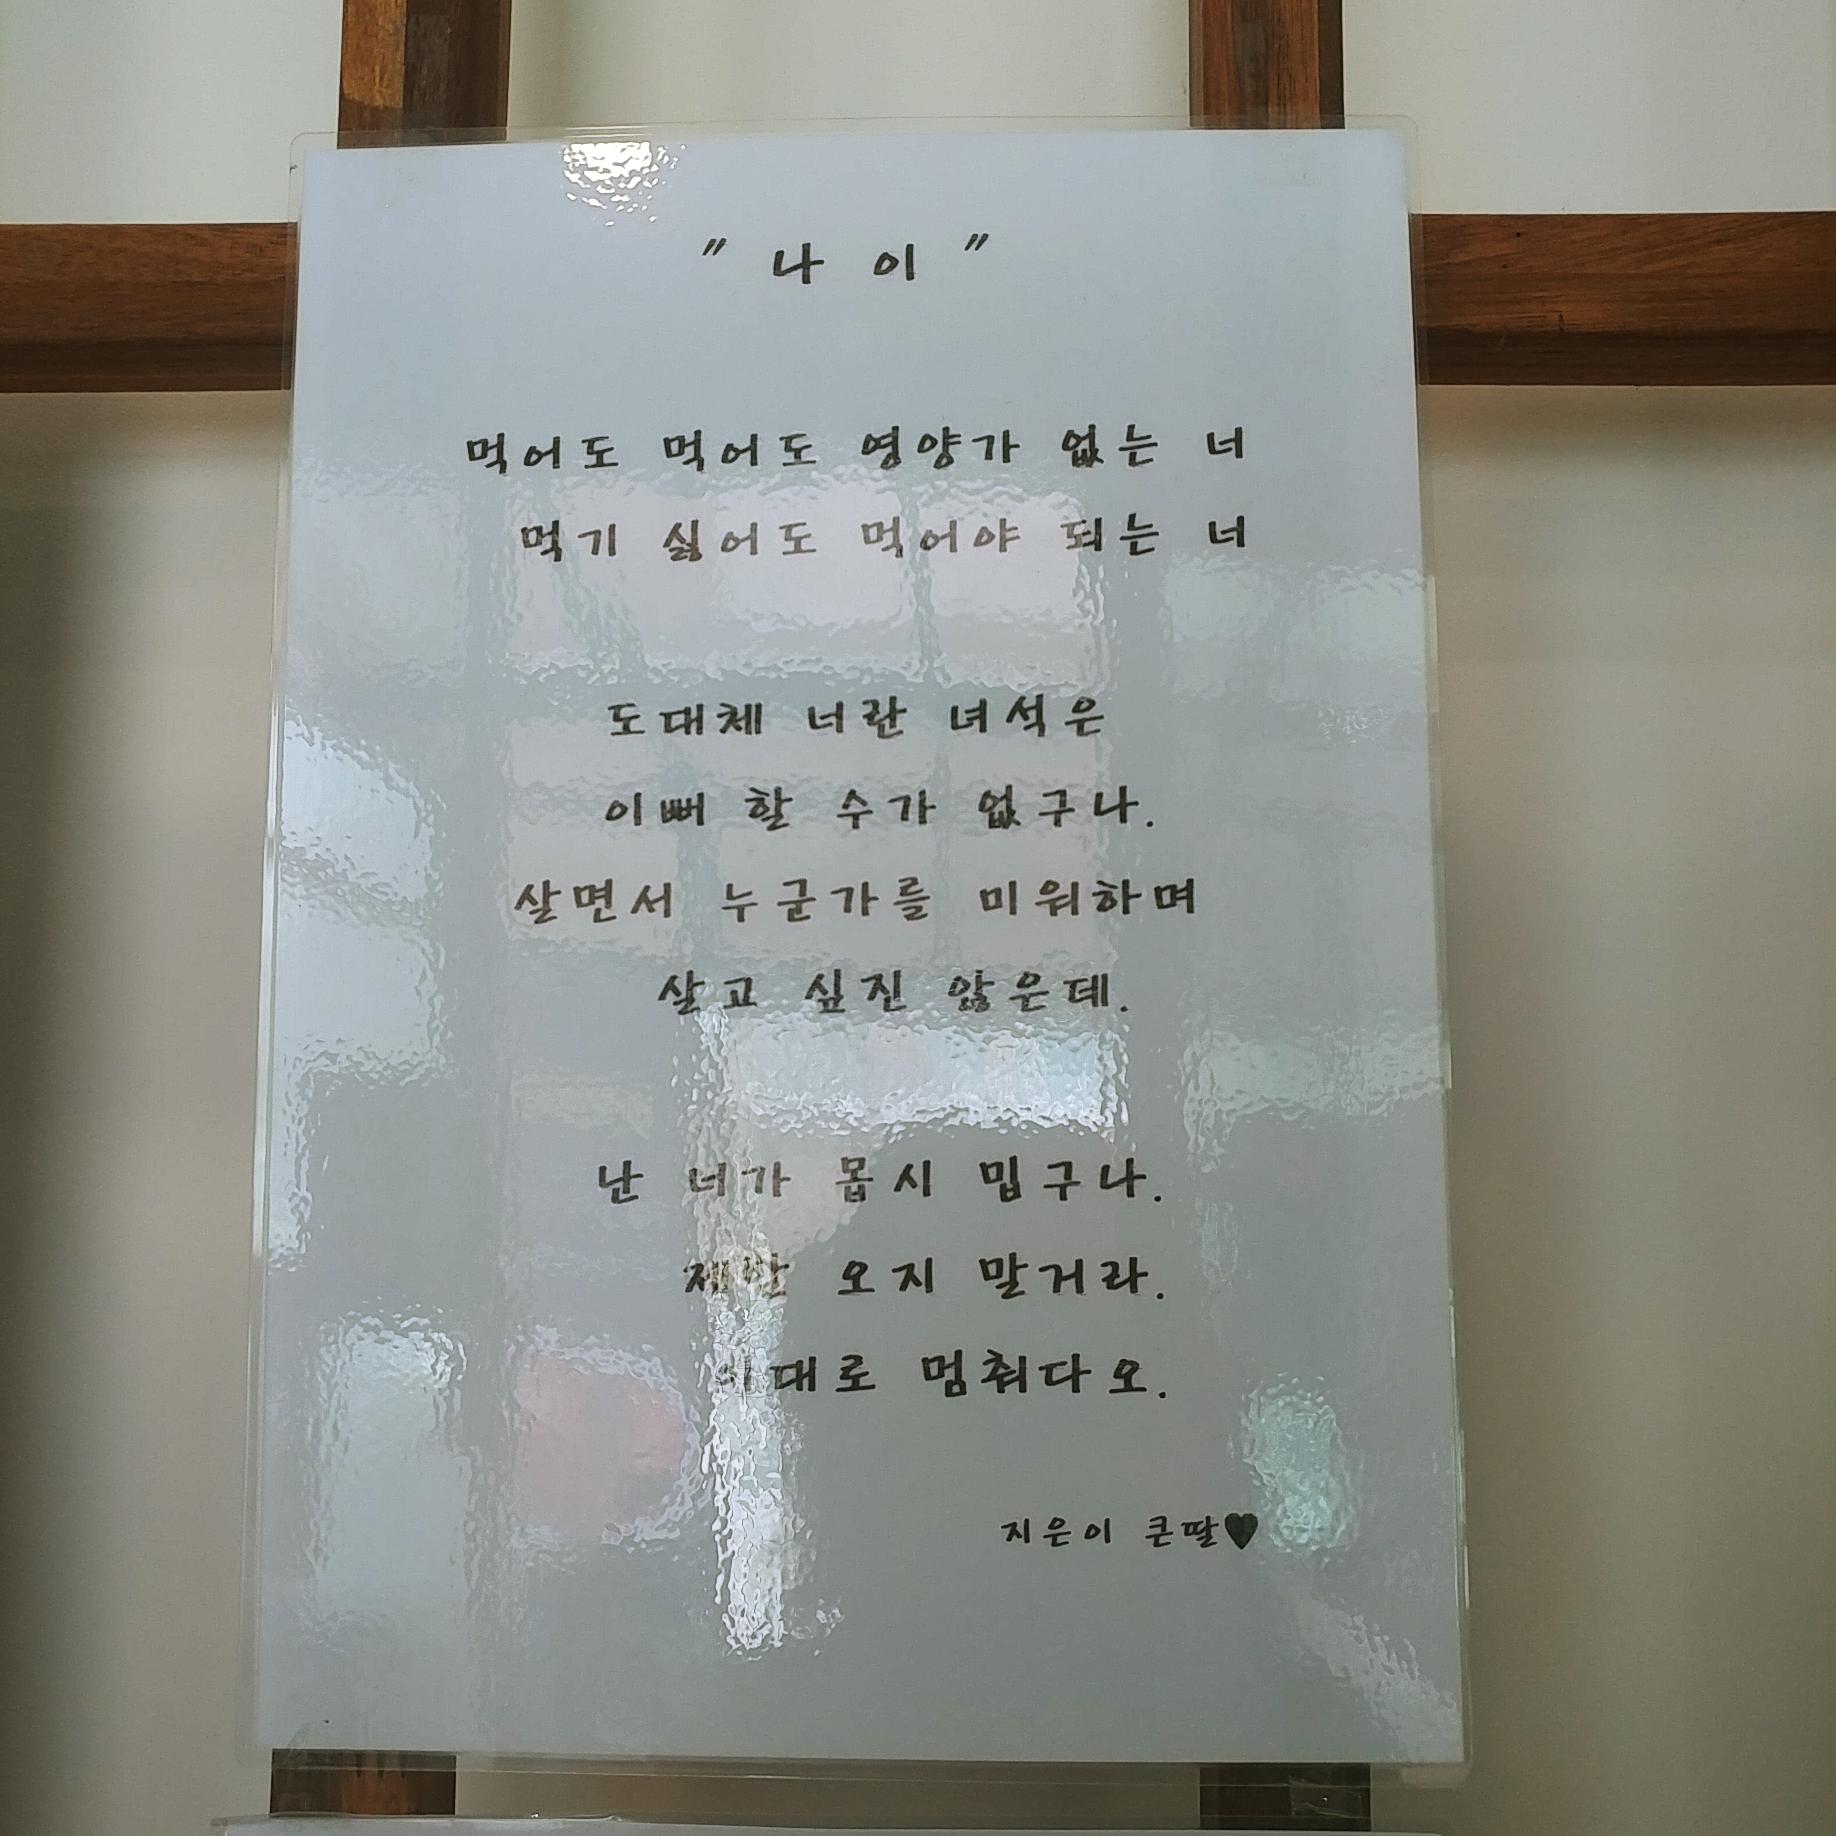 " 나 이 "
먹어도 먹어도 영양가 없는 너
먹기 싫어도 먹어야 되는 너
도대체 너란 녀석은
이뻐 할 수가 없구나.
살면서 누군가를 미워하며
살고 싶진 않은데.
난 너가 몹시 밉구나.
제발 오지 말거라.
이대로 멈춰다오.
지은이 큰딸♥